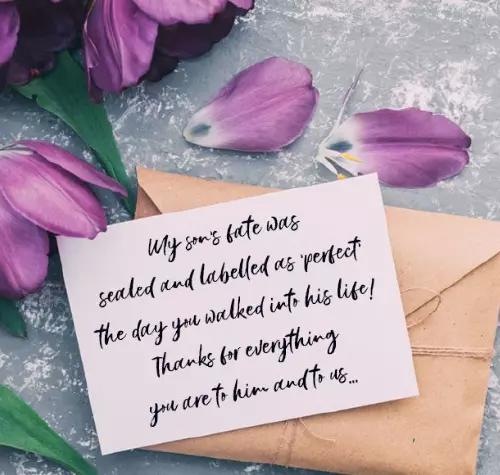 My son's fate was
sealed and labelled as 'perfect'
the day you walked into his life!
Thanks for everything
you are to him and to us...